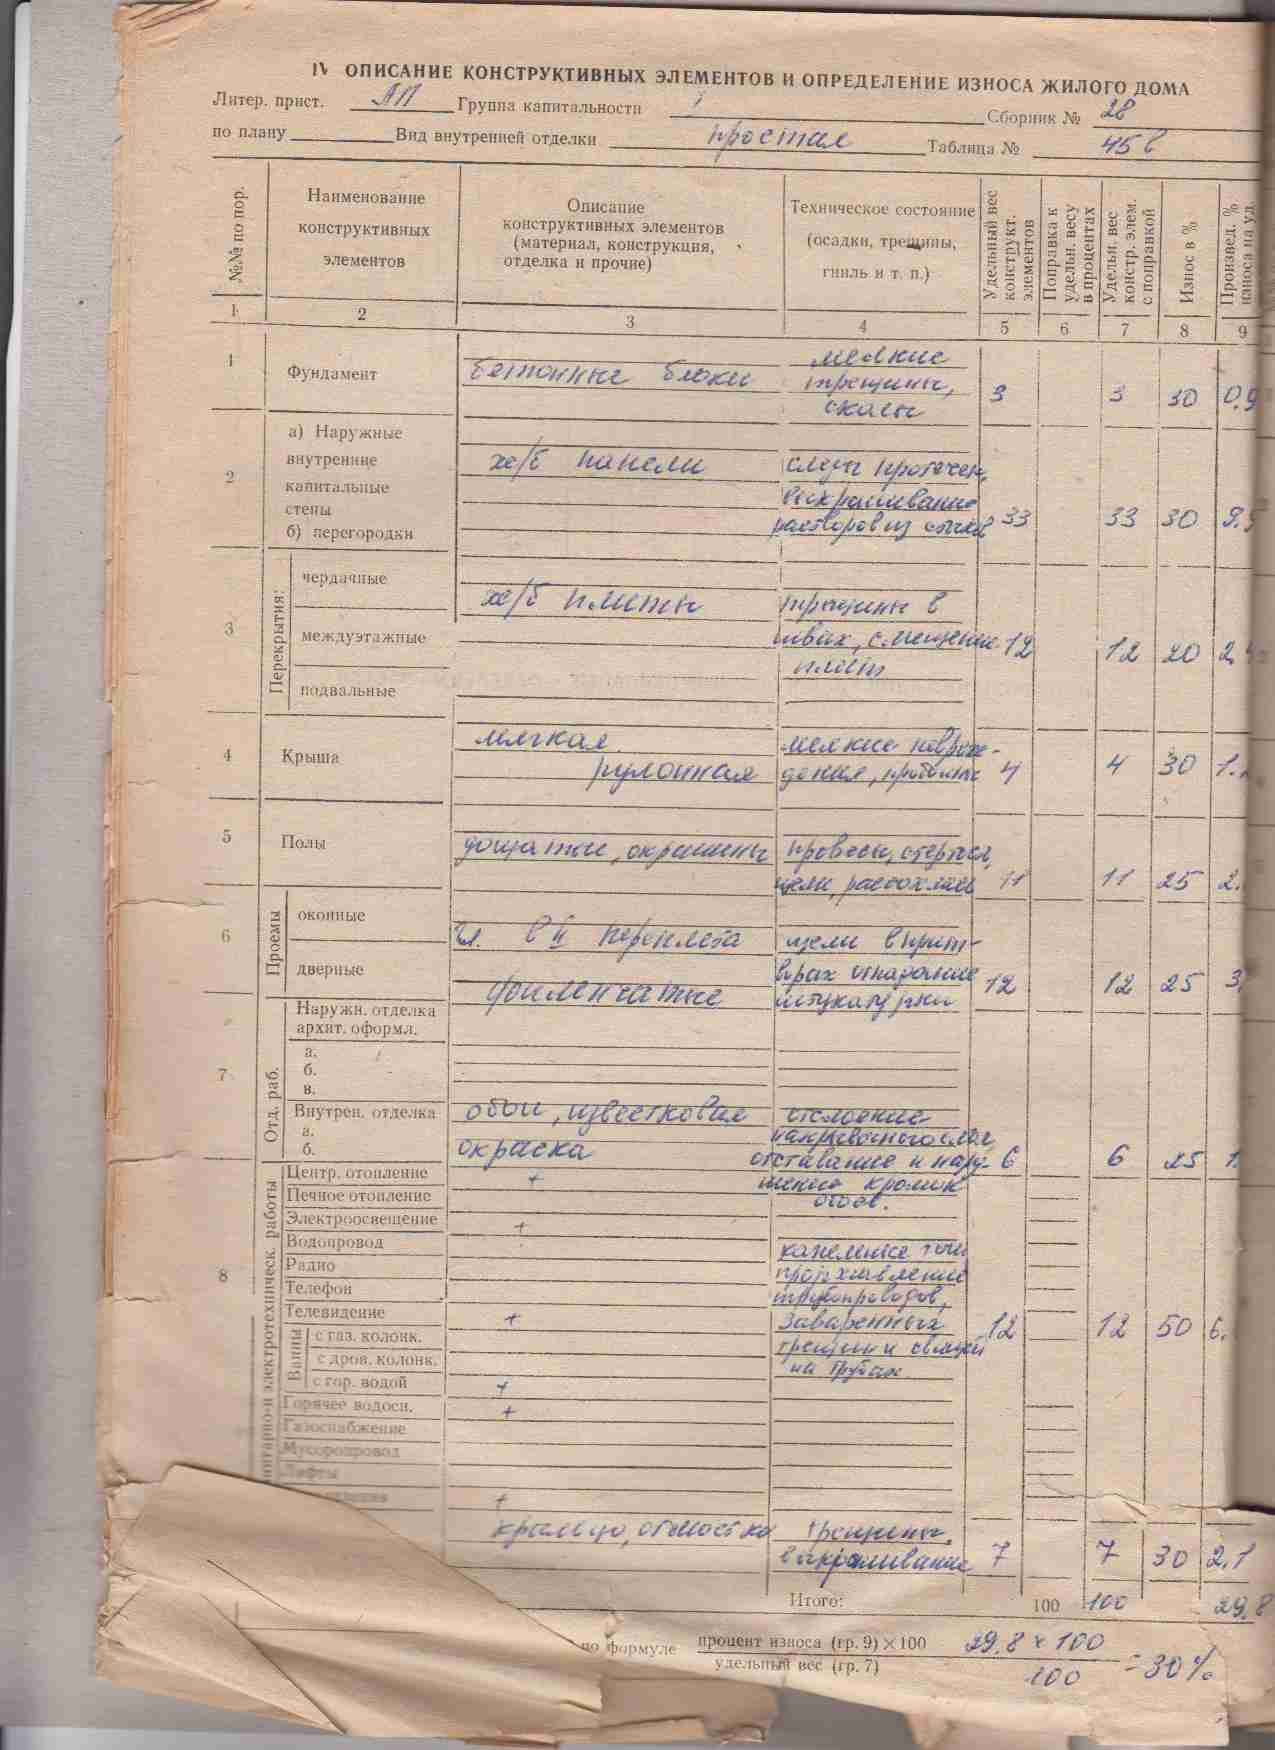 IV ОПИСАНИЕ КОНСТРУКТИВНЫХ ЭЛЕМЕНТОВ И ОПРЕДЕЛЕНИЕ ИЗНОСА ЖИЛОГО ДОМА
Литер. прист. АП Группа капитальности Сборник № 28
по плану Вид внутренней отделки простая Таблица № 45в
№№ по пор.
Наименование
конструктивных
элементов
Описание
конструктивных элементов
(материал, конструкция,
отделка и прочие)
Техническое состояние
(осадки, трещины,
гниль и т. п.)
Удельный вес
конструкт.
элементов
Поправка к
удельн. весу
в процентах
Удельн. вес
констр. элем.
с поправкой
Износ в %
Произвед. %
износа на уд.
1 2 3 4 5 6 7 8 9
1 Фундамент бетонные блоки мелкие
трещины,
сколы
3 3 30 0.9
2 а) Наружные
внутренние
капитальные
стены
б) перегородки
ж/б панели
следы протечек,
выкрашивание
растворов из стыков
33 33 30 9.9
3 Перекрытия:
чердачные
междуэтажные
подвальные
ж/б плиты
трещины в
швах, смещение
плит
12 12 20 2.
4 Крыша мягкая
рулонная
мелкие повреж-
дения, пробоины
4 4 30 1.
5 Полы дощатые, окрашены
щели, рассохлись
11 11 25 2.
6 Проемы
оконные
дверные
переплета
филенчатые
щели в прит-
ворах отпадание
штукатурки
12 12 25 3.
7 Отд. раб.
Наружн. отделка
архит. оформл.
а.
б.
в.
Внутрен. отделка
а.
б.
обои, известковая
окраска
отслоение
покрасочного слоя,
отставание и нару-
шение кромки
обоев.
6 6 25 1.
8 санитарно-и электротехническ. работы
Центр. отопление +
Печное отопление
Электроосвещение +
Водопровод
Радио
Телефон
Телевидение +
Ванны
с газ. колонк.
с дров. колонк.
с гор. водой +
Горячее водосн. +
Газоснабжение
Мусоропровод
Лифты
+
капельные течи
трубопроводов,
заваренных
трещин и свищей
на трубах
12 12 50 6.
крыльцо, отмостка
трещины,
выкрашивание
7 7 30 2.1
Итого: 100 100 29.8
по формуле процент износа (гр. 9) × 100
удельный вес (гр. 7)
29.8 × 100
100
= 30%